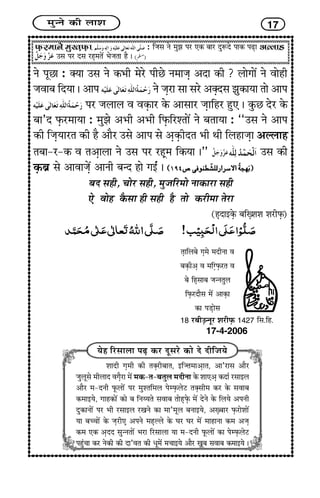 मुन्ने की लाश
17
फ़रमाने मुस्तफ़ा صلى الله تعالى عليه واله وسلم : जिस ने मुझ पर एक बार दुरूदे पाक पढ़ा अल्लाह
عَزَّوَجَلَّ उस पर दस रहमतें भेजता है ।
ने पूछा : क्या उस ने कभी मेरे पीछे नमाज़ अदा की ? लोगों ने वोही
जवाब दिया । आप رَحْمَةُ اللهِ تَعَالٰى عَلَيْهِ ने ज़रा सा सरे अक़्दस झुकाया तो आप
رَحْمَةُ اللهِ تَعَالٰى عَلَيْهِ पर जलाल व वक़ार के आसार ज़ाहिर हुए । कुछ देर के
बा'द फ़रमाया : मुझे अभी अभी फ़िरिश्तों ने बताया : ''उस ने आप
की ज़ियारत की है और उसे आप से अ़क़ीदत भी थी लिहाज़ा अल्लाह
तबा-र-क व तआ़ला ने उस पर रहम किया ।'' اَلْحَمْدُ لِلّٰه عَزَّوَجَلَّ उस की
क़ब्र से आवाज़ें आनी बन्द हो गईं । (بَهجةُ الاسرارللشَّطنوفى ص١٩٤)
बद सही, चोर सही, मुजरिमो नाकारा सही
ऐ वोह कैसा ही सही है तो करीमा तेरा
(हदाइक़े बख़्शिश शरीफ़)
صَلُّوْا عَلَى الْحَبِيْب! صَلَّى اللهُ تَعَالٰى عَلٰى مُحَمَّد
तालिबे ग़मे मदीना व
बक़ीअ़ व मग़्फ़िरत व
बे हिसाब जन्नतुल
फ़िरदौस में आक़ा
का पड़ोस
18 रबीउ़न्नूर शरीफ़ 1427 सि.हि.
17-4-2006
येह रिसाला पढ़ कर दूसरे को दे दीजिये
शादी ग़मी की तक़रीबात, इज्तिमाआ़त, आ'रास और
जुलूसे मीलाद वग़ैरा में मक-त-बतुल मदीना के शाएअ़ कर्दा रसाइल
और म-दनी फूलों पर मुश्तमिल पेम्फ़लेट तक़्सीम कर के सवाब
कमाइये, गाहकों को ब निय्यते सवाब तोह़फ़े में देने के लिये अपनी
दुकानों पर भी रसाइल रखने का मा'मूल बनाइये, अख़्बार फ़रोशों
या बच्चों के ज़रीए़ अपने मह़ल्ले के घर घर में माहाना कम अज़
कम एक अ़दद सुन्नतों भरा रिसाला या म-दनी फूलों का पेम्फ़लेट
पहुंचा कर नेकी की दा'वत की धूमें मचाइये और ख़ूब सवाब कमाइये ।